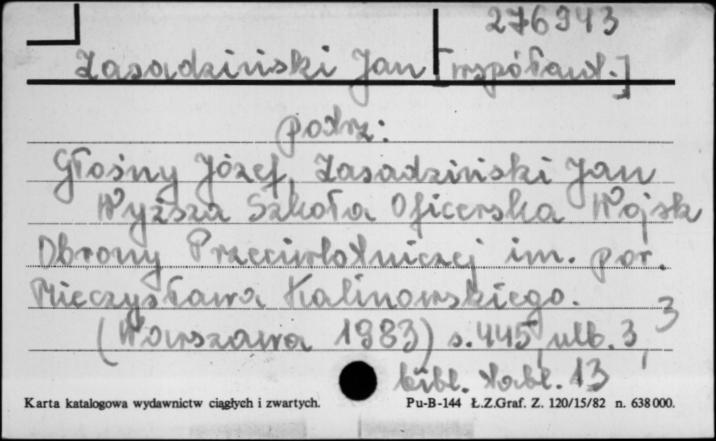 276943
Zasadziński Jan [współaut.]
patrz:
Głośny Józef, Zasadziński Jan
Wyższa Szkoła Oficerska Wojsk
Obrony Przeciwlotniczej im. por.
Mieczysława Kalinowskiego.
(Warszawa 1983) s. 445, nlb. 3, 3
bibl. tabl. 13
Karta katalogowa wydawnictw ciągłych i zwartych.
Pu-B-144 Ł.Z.Graf. Z. 120/15/82 n. 638000.